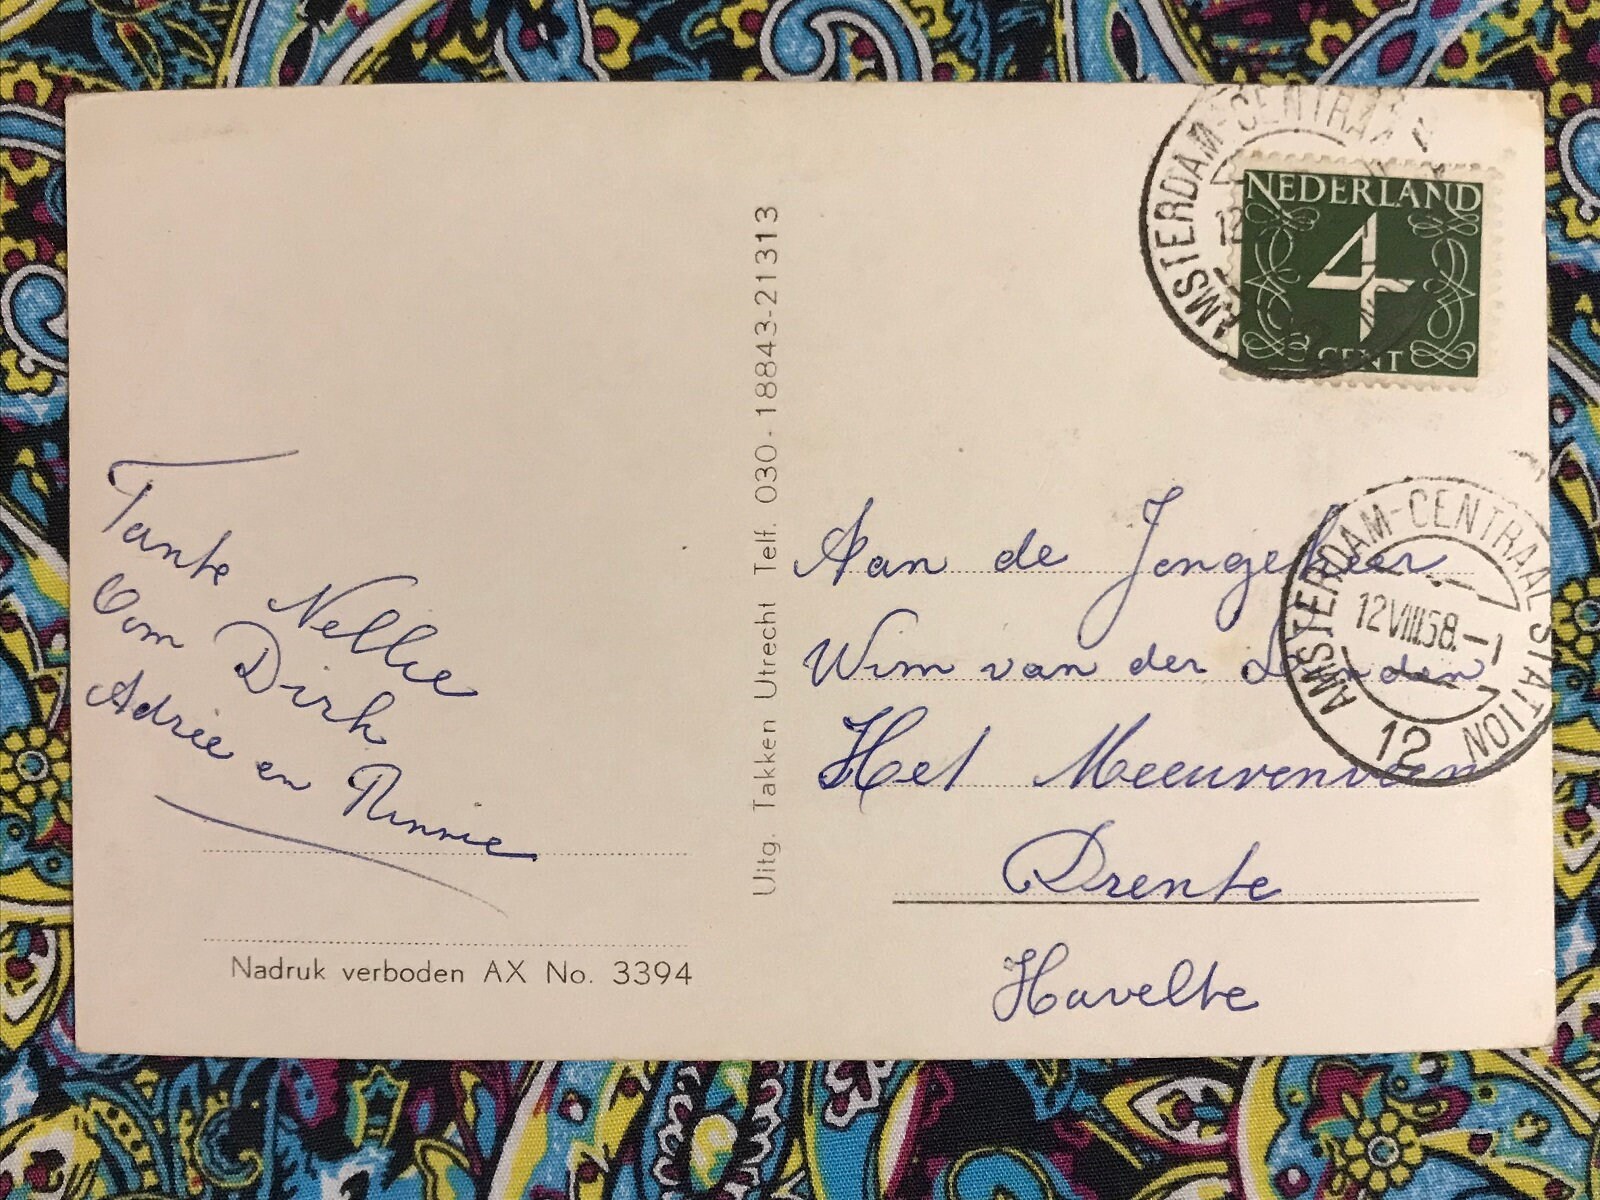 AMSTERDAM-CENTRAAL
12
NEDERLAND
4
CENT
Tante Nellie
Oom Dirk
Adrie en Rinnie
Nadruk verboden AX No. 3394
Uitg. Takken Utrecht Telf. 030-18843-21313
AMSTERDAM-CENTRAAL STATION
12VIII.58.-
12
Aan de Jongeheer
Wim van der Linden
Het Meeuwenveen
Drente
Havelte